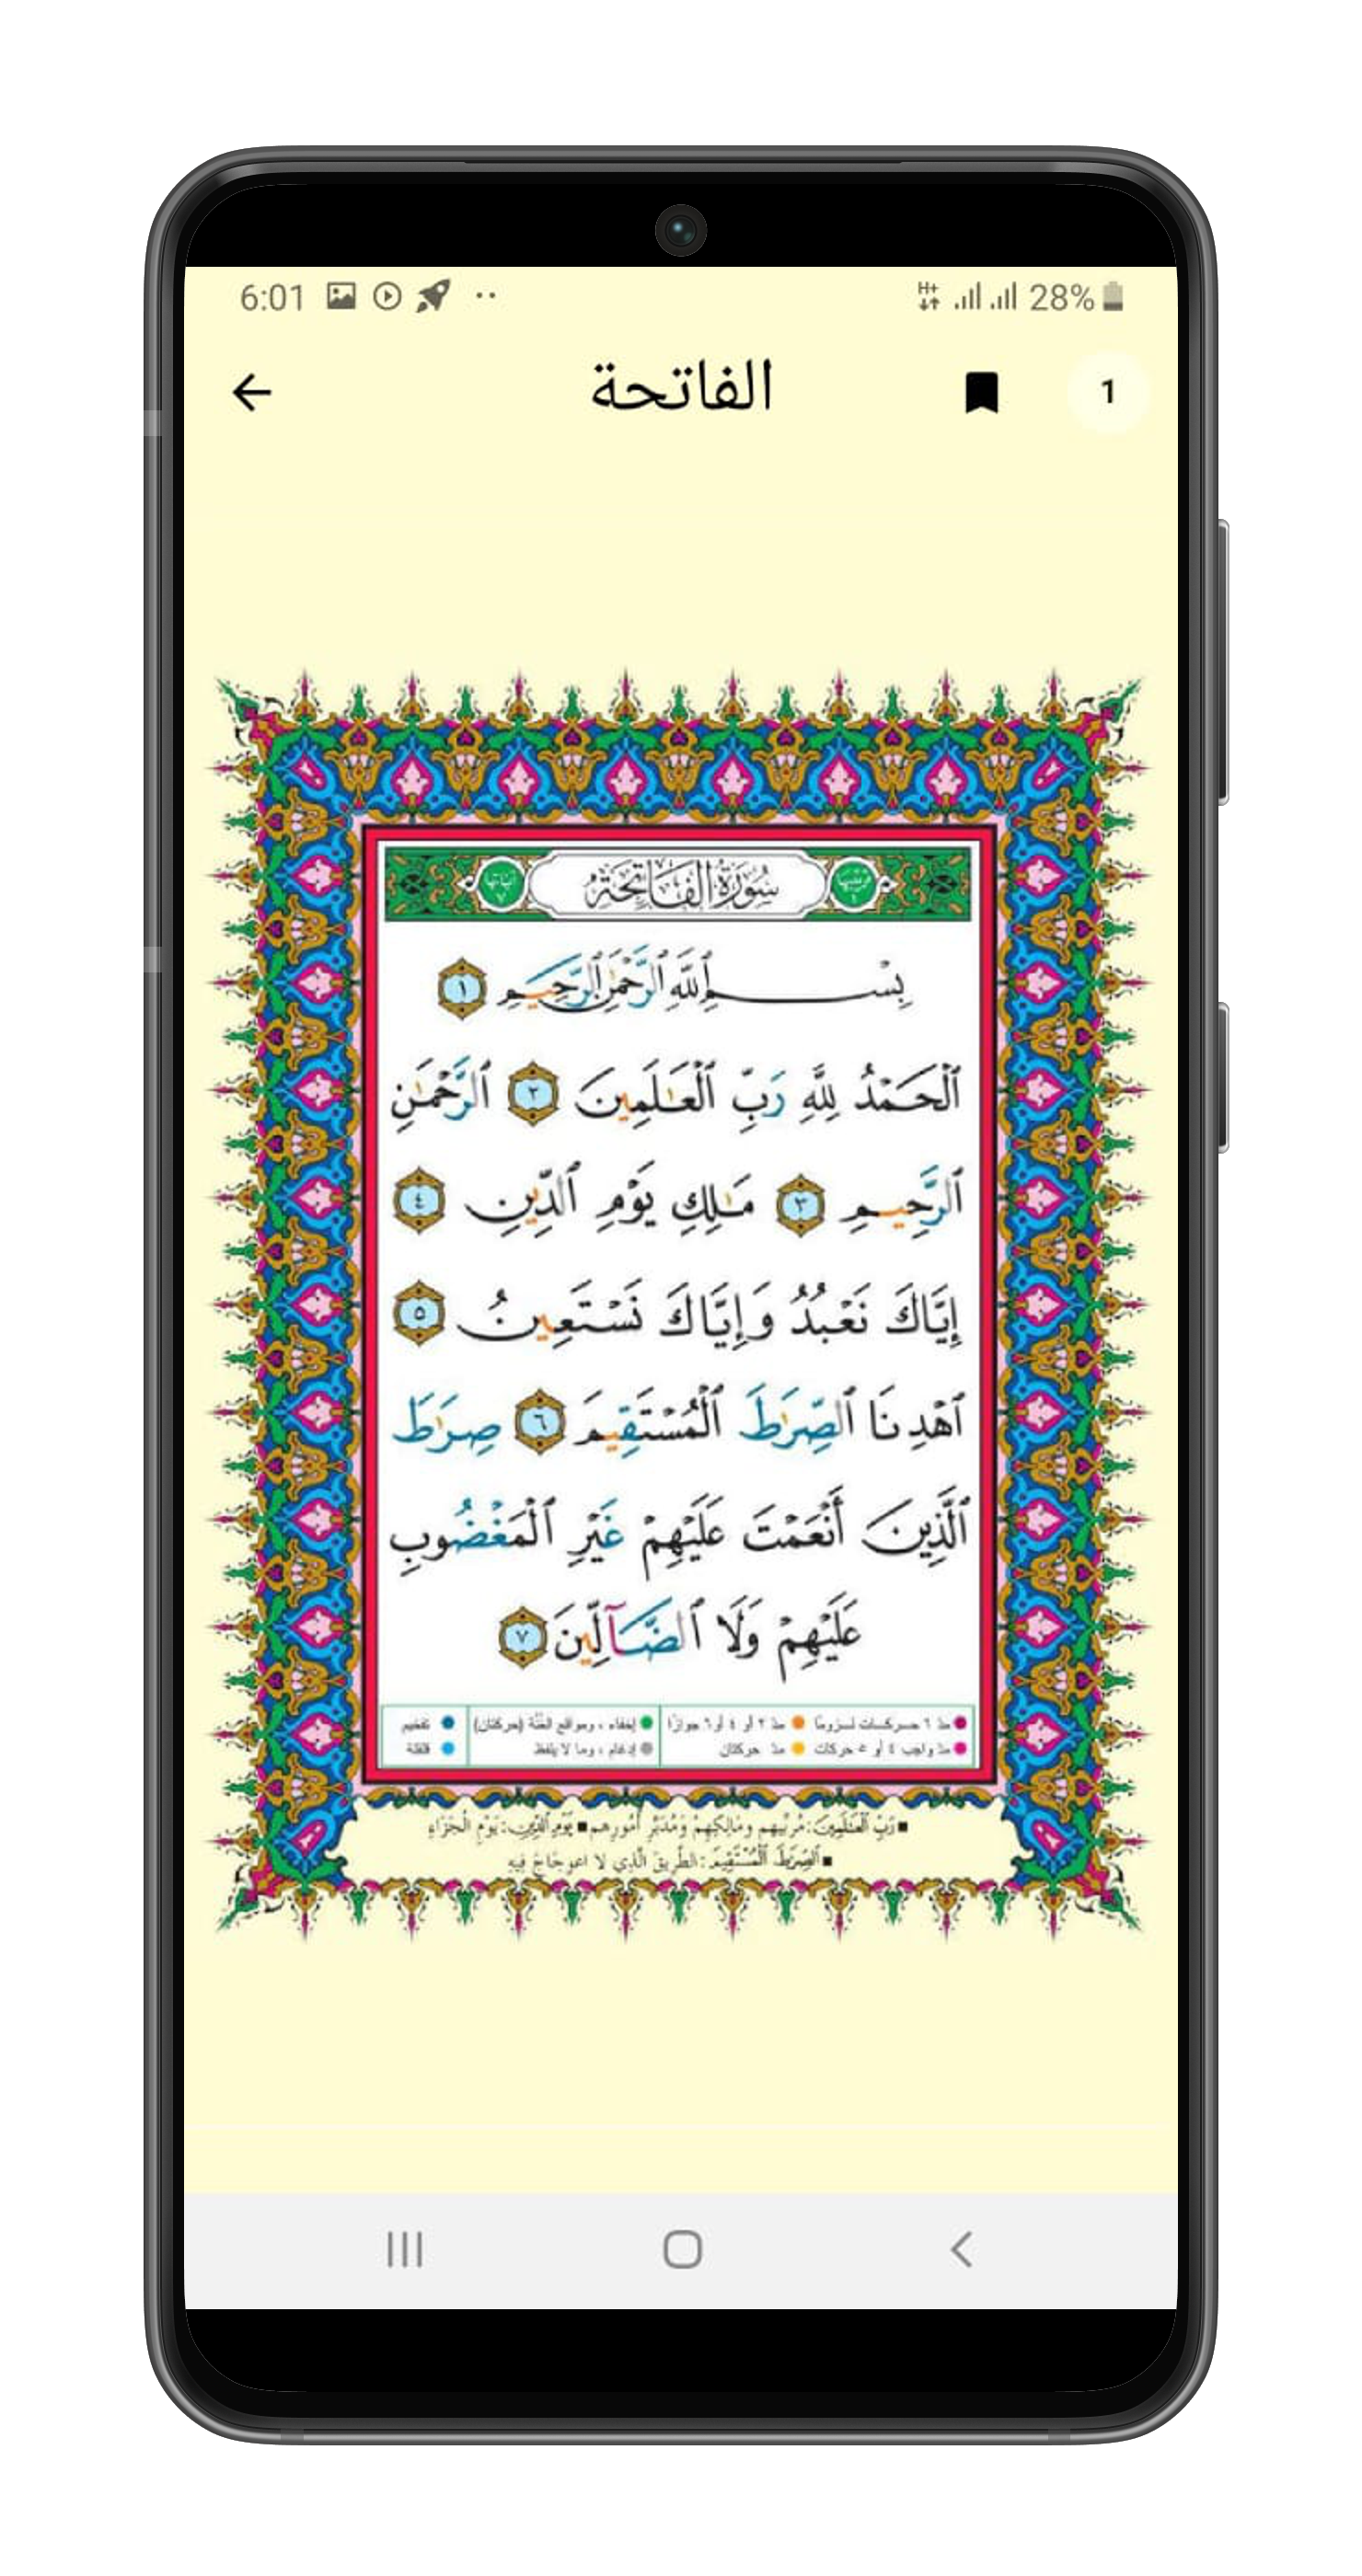 6:01 H+ 28%
الفاتحة 1
ترتيبها ١ سُورَةُ الفَاتِحَةِ آياتها ٧
بِسْمِ ٱللَّهِ ٱلرَّحْمَٰنِ ٱلرَّحِيمِ ١
ٱلْحَمْدُ لِلَّهِ رَبِّ ٱلْعَٰلَمِينَ ٢ ٱلرَّحْمَٰنِ
ٱلرَّحِيمِ ٣ مَٰلِكِ يَوْمِ ٱلدِّينِ ٤
إِيَّاكَ نَعْبُدُ وَإِيَّاكَ نَسْتَعِينُ ٥
ٱهْدِنَا ٱلصِّرَٰطَ ٱلْمُسْتَقِيمَ ٦ صِرَٰطَ
ٱلَّذِينَ أَنْعَمْتَ عَلَيْهِمْ غَيْرِ ٱلْمَغْضُوبِ
عَلَيْهِمْ وَلَا ٱلضَّآلِّينَ ٧
مدّ ٦ حركات لزومًا مدّ ٢ أو ٤ أو ٦ جوازًا إخفاء، ومواقع الغُنَّة (حركتان) تفخيم
مدّ واجب ٤ أو ٥ حركات مدّ حركتان إدغام، وما لا يُلفظ قلقلة
رَبِّ ٱلْعَٰلَمِينَ: مُرَبِّيهِم ومَالِكِهِمْ وَمُدَبِّرِ أُمُورِهِم يَوْمِ ٱلدِّينِ: يَوْمِ الْجَزَاءِ
ٱلصِّرَٰطَ ٱلْمُسْتَقِيمَ: الطَّرِيقَ الَّذِي لا اعوِجَاجَ فِيهِ